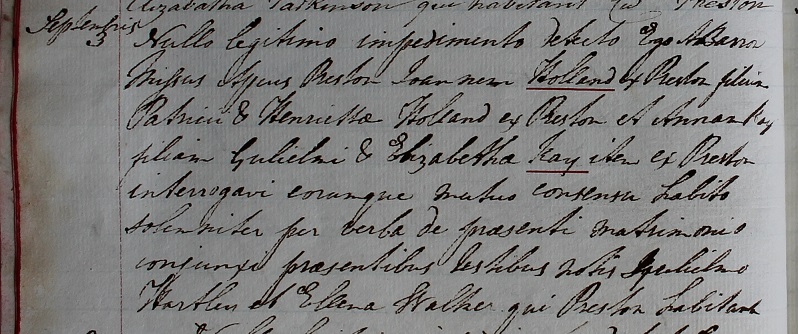 Elizabetha Parkinson qui habitant Preston
Septembris
3 Nullo legitimo impedimento detecto Ego
Missus Apcus Preston Joannem Holland ex Preston filium
Patricii & Henriettæ Holland ex Preston et Annam Kay
filiam Gulielmi & Elizabethæ Kay item ex Preston
interrogavi eorumque mutuo consensu habito
solemniter per verba de præsenti matrimonio
conjunxi præsentibus testibus notis Gulielmo
Hartley et Ellena Walker qui Preston habitant